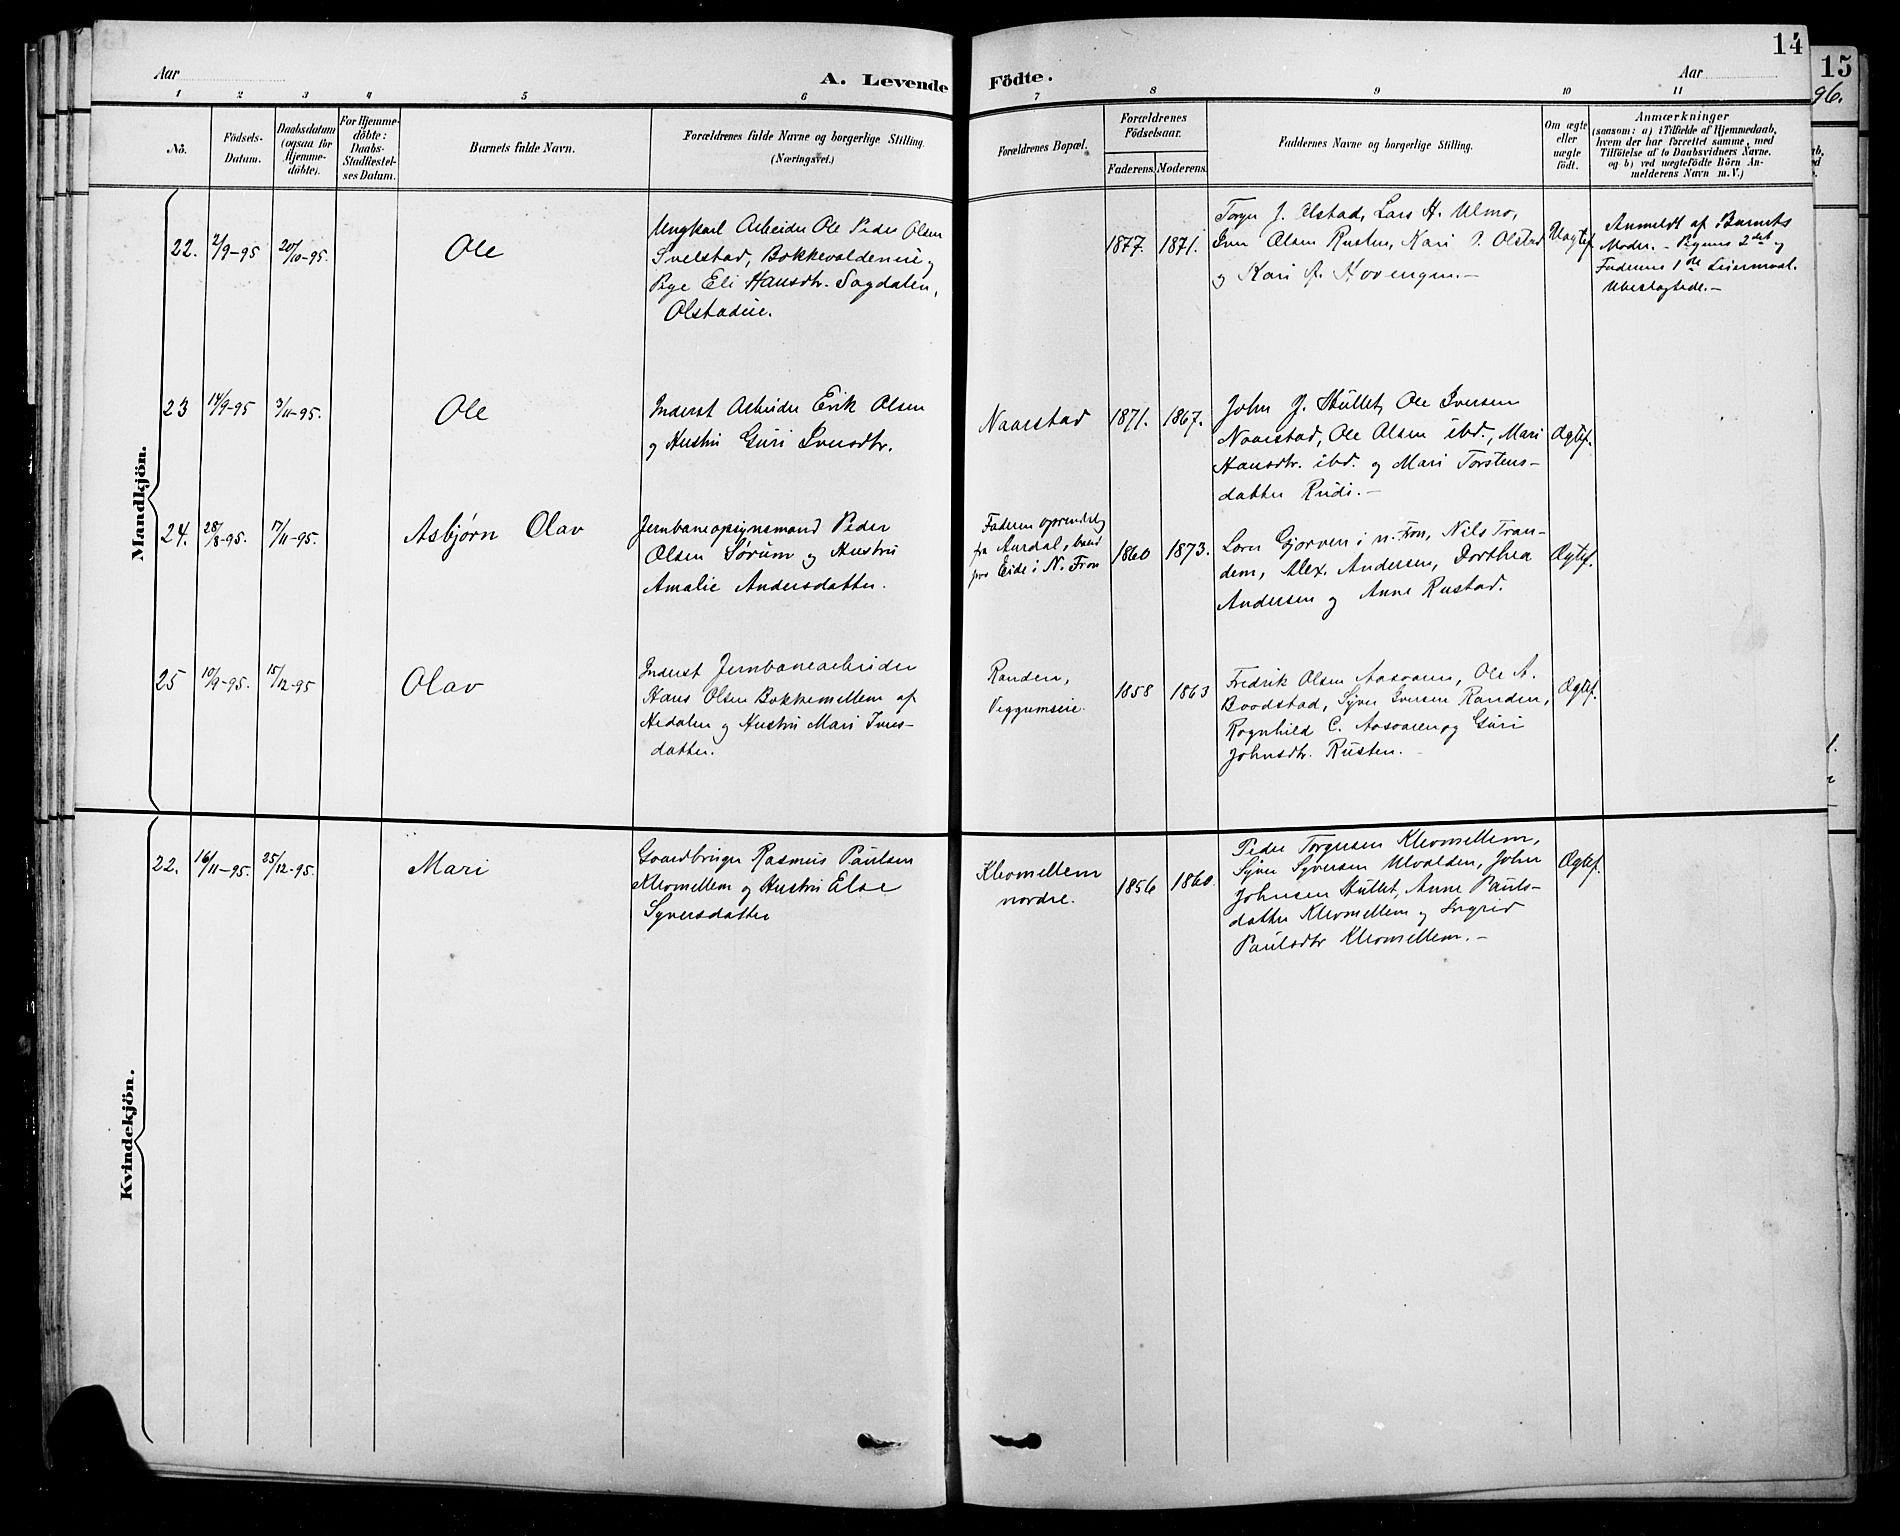 14
15
96.
Aar
A. Levende Födte.
Aar
1 2 3 4 5 6 7 8 9 10 11
No.
Födsels-
Datum.
Daabsdatum
(ogsaa for
Hjemme-
döbte).
For Hjemme-
döbte:
Daabs-
Stadfæstel-
ses Datum.
Barnets fulde Navn.
Forældrenes fulde Navne og borgerlige Stilling.
(Næringsvei.)
Forældrenes Bopæl.
Forældrenes
Födselsaar.
Faderens. Moderens.
Faddernes Navne og borgerlige Stilling.
Om ægte
eller
uægte
födt.
Anmærkninger
(saasom: a) i Tilfælde af Hjemmedaab,
hvem der har forrettet samme, med
Tilföielse af to Daabsvidners Navne,
og b) ved uægtefödte Börn An-
melderens Navn m. V.)
Mandkjön.
22. 2/9-95 20/10-95. Ole
Ungkarl Arbeider Ole Peder Olsen
Svelstad, Bokkevaldeneie og
Pige Eli Hansdtr. Sagdalen,
Olstadeie.
1877. 1871.
Torger J. Olstad, Lars H. Ulmo,
Iver Olsen Rusten, Kari O. Olstad
og Kari A. Hovengen.-
Uægtef.
Anmeldt af Barnets
Moder. - Pigens 2det og
Faderens 1ste Leiermaal.
Ubeslægtede.-
23 14/9-95 3/11-95. Ole
Inderst Arbeider Erik Olsen
og Hustru Guri Iversdtr.
Naarstad 1871. 1867.
John J. Stullet, Ole Iversen
Naarstad, Ole Olsen ibd., Mari
Hansdtr. ibd. og Mari Torstens-
datter Rudi.-
Ægtef.
24. 28/8-95. 17/11-95. Asbjørn Olav
Jernbaneopsynsmand Peder
Olsen Sørum og Hustru
Amalie Andersdatter.
Faderen oprindelig
fra Aurdal, boende
paa Eide i N. Fron
1860 1873.
Lars Gjorven i n. Fron, Nils Tran-
dem, Alex. Andersen, Dorthea
Andersen og Anne Rustad.
Ægtef.
25 10/9-95. 15/12-95 Olav
Inderst Jernbanearbeider
Hans Olsen Bakkemellem af
Hedalen og Hustru Mari Ivers-
datter.
Randen,
Veggumseie.
1858 1863
Fredrik Olsen Aasaaren, Ole A.
Baadstad, Syver Iversen Randen,
Ragnhild C. Aasaaren og Guri
Johnsdtr. Rusten.-
Ægtef.
Kvindekjön.
22. 16/11-95. 25/12-95. Mari
Gaardbruger Rasmus Paulsen
Kleomellem og Hustru Else
Syversdatter
Kleomellem
nordre.
1856 1860.
Peder Torgersen Kleomellem,
Syver Syversen Ulvalden, John
Johnsen Stullet, Anne Pauls-
datter Kleomellem og Ingrid
Paulsdtr Kleomellem.-
Ægtef.